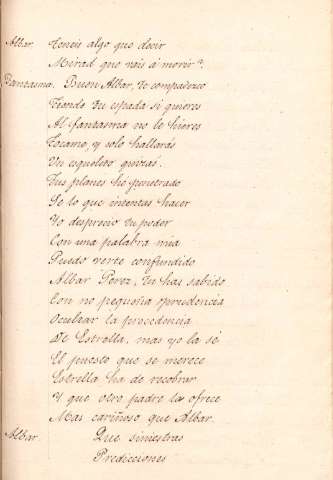 Albar. Teneis algo que decir
Mirad que vais á morir?
Fantasma. Buen Albar, te compadezco
Tiende tu espada si quieres
Al fantasma no le hieres
Tócame, y solo hallarás
Un esqueleto quizas.
Tus planes he penetrado
Se lo que intentas hacer
Yo desprecio tu poder
Con una palabra mia
Puedo verte confundido
Albar Perez, tu has sabido
Con no pequeña prudencia
Ocultar la procedencia
De Estrella, mas yo la sé
El puesto que se merece
Estrella ha de recobrar
Y que otro padre la ofrece
Mas cariñoso que Albar.
Albar. Que siniestras
Predicciones